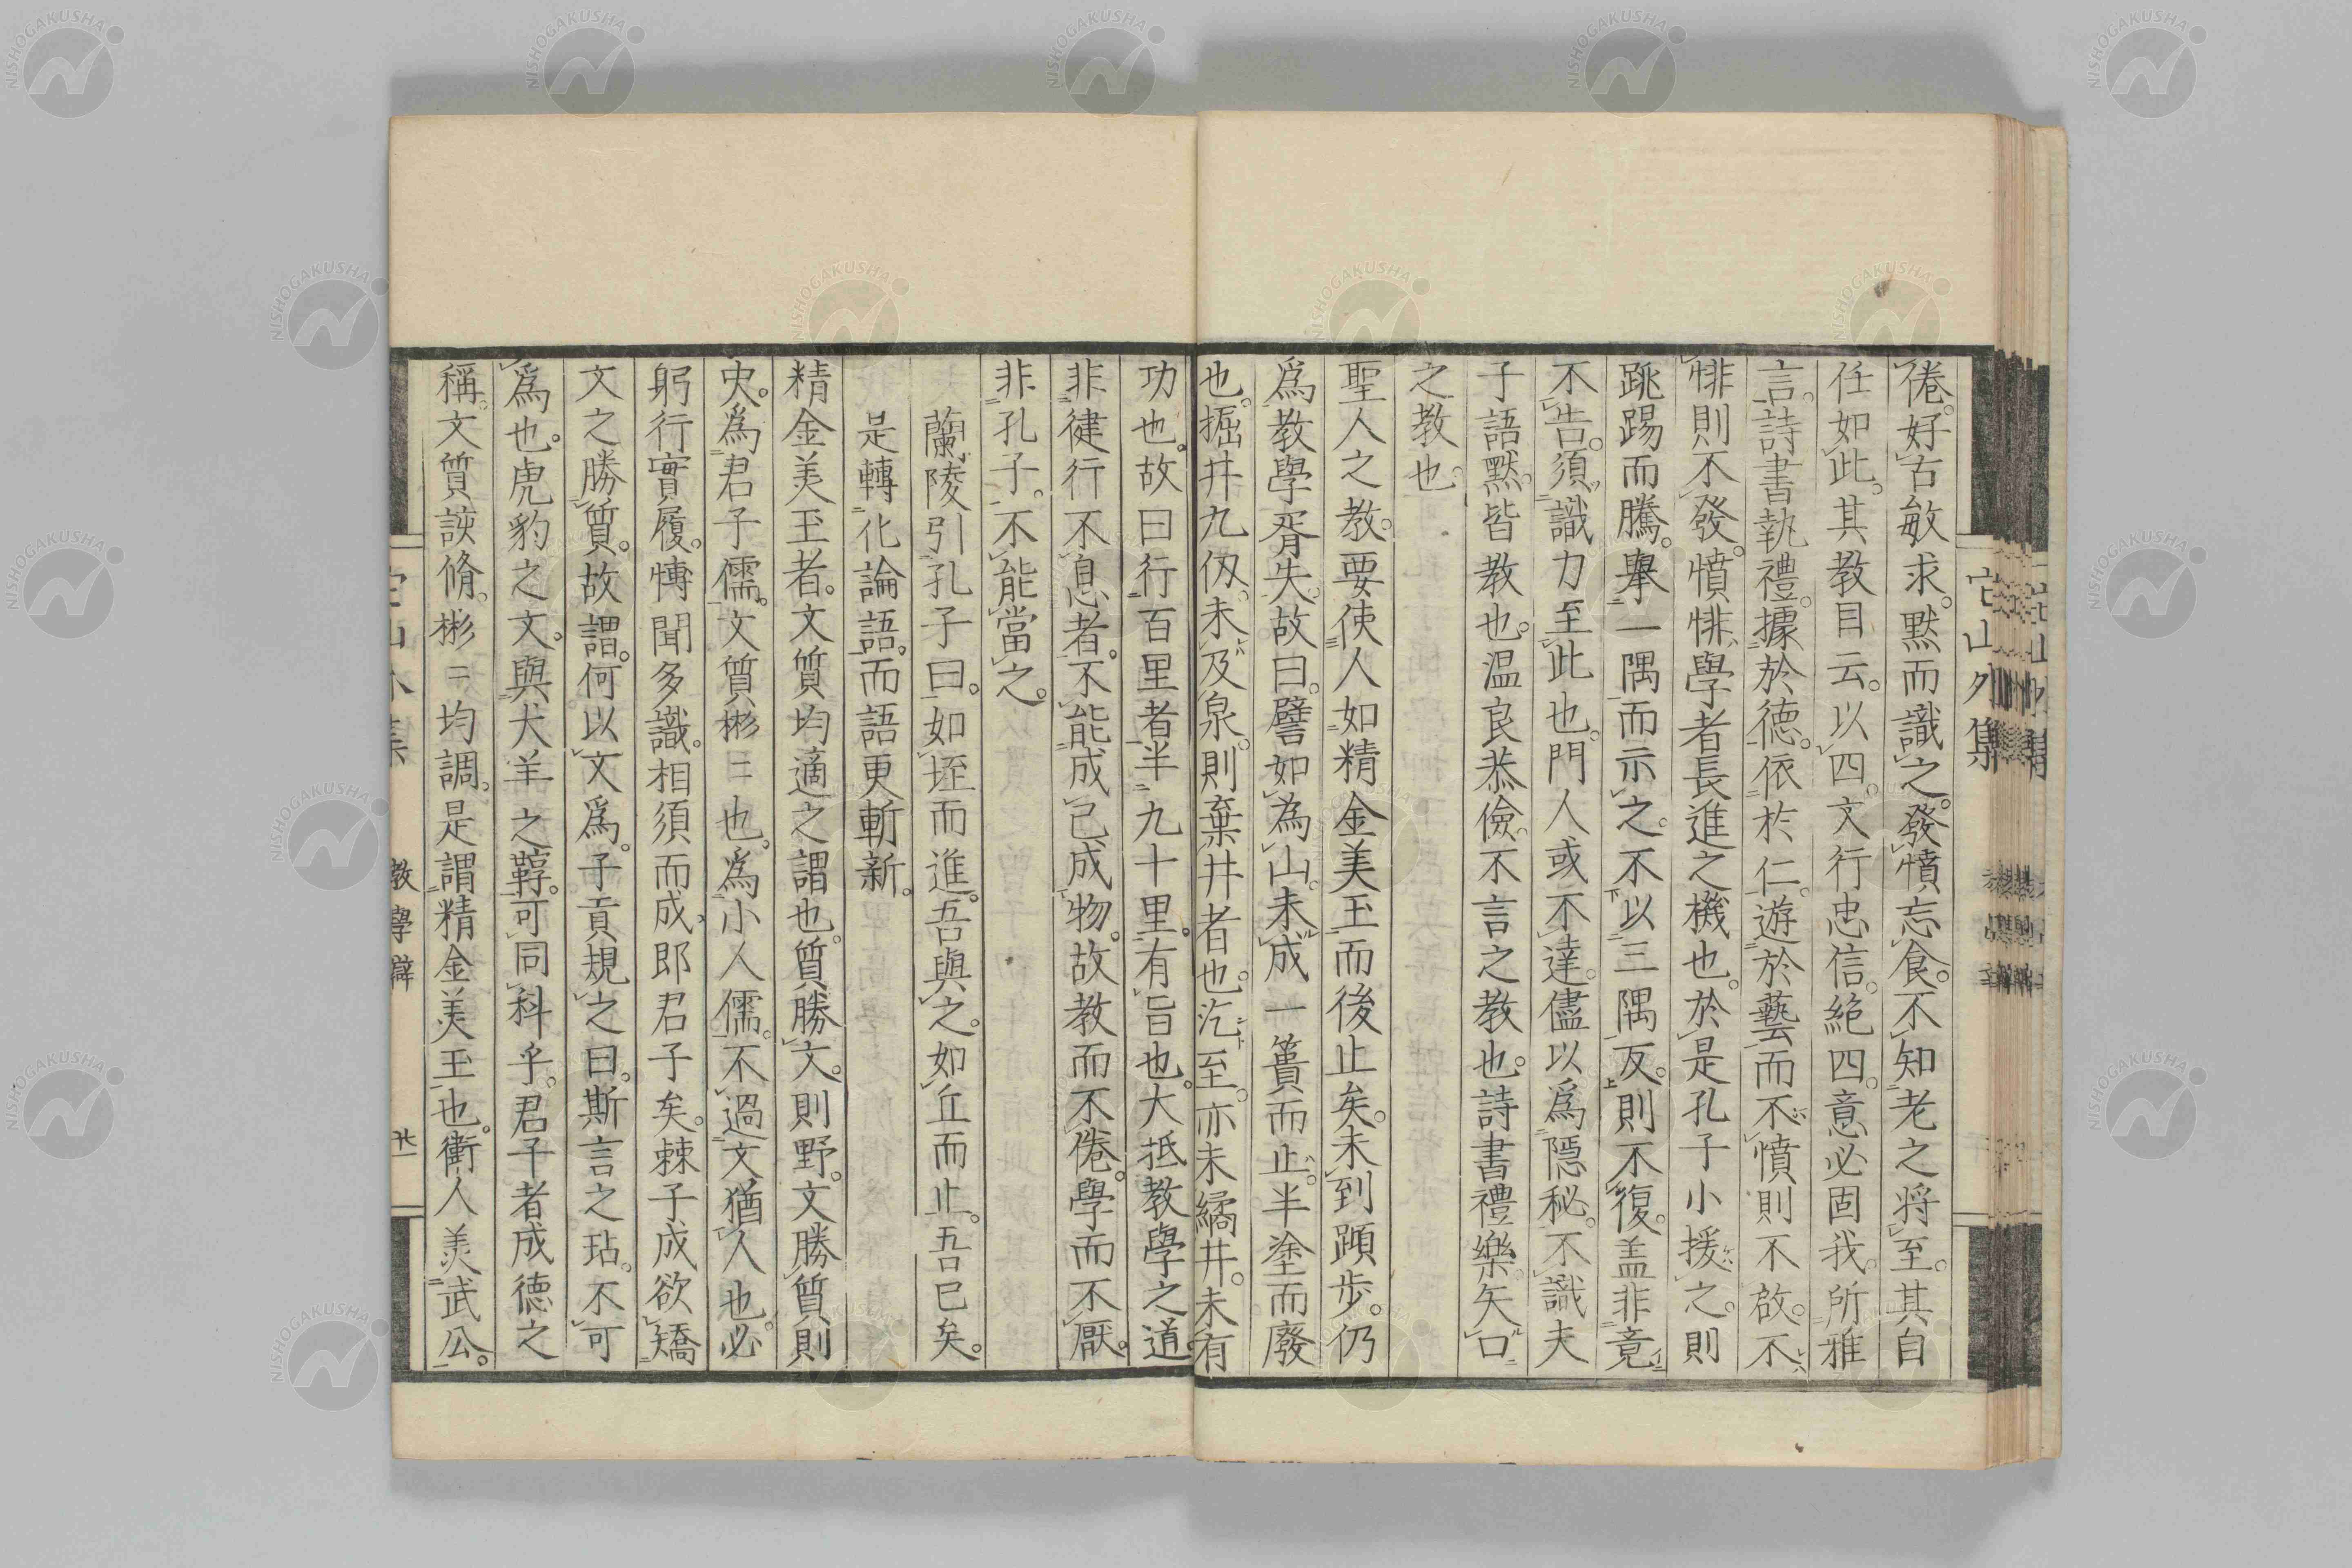 倦。好古敏求。黙而識之。發憤忘食。不知老之将至。其自
任如此。其教目云。以四。文行忠信。絶四。意必固我。所雅
言。詩書執禮。據於德。依於仁。遊於藝。而不憤則不啟。不
悱則不發。憤悱學者長進之機也。於是孔子小援之。則
跳踢而騰。擧一隅而示之。不以三隅反。則不復。盖非竟
不告。須識力至此也。門人或不達。儘以爲隠秘。不識夫
子語黙。皆教也。温良恭儉。不言之教也。詩書禮樂矢口
之教也。
聖人之教。要使人如精金美玉而後止矣。未到踬歩。仍
爲教學胥失。故曰。譬如為山。未成一簣而止。半塗而廢
也。掘井九仭。未及泉。則棄井者也。汔至。亦未繘井。未有
功也。故曰行百里者半九十里。有旨也。大抵教學之道。
非健行不息者。不能成己成物。故教而不倦。學而不厭。
非孔子。不能當之。
蘭陵引孔子曰。如垤而進。吾與之。如丘而止。吾已矣。
是轉化論語。而語更斬新。
精金美玉者。文質均適之謂也。質勝文。則野。文勝質則
史。爲君子儒。文質彬〻也。爲小人儒。不過文猶人也。必
躬行實履。博聞多識。相須而成。郎君子矣。棘子成欲矯
文之勝質。故謂。何以文爲。子貢規之曰。斯言之玷。不可
爲也。虎豹之文。與犬羊之鞟。可同科乎。君子者成德之
稱。文質諔脩。彬〻均調。是謂精金美玉也。衛人美武公。
宀山外集
教學辯
廿一